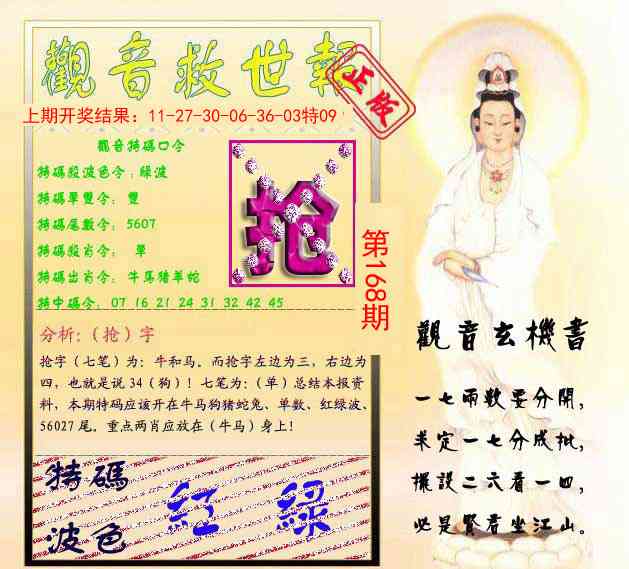 觀音救世報
正版
上期开奖结果：11-27-30-06-36-03特09
觀音特碼口令
特碼段波色令：綠波
特碼單雙令：雙
特碼尾數令：5607
特碼段肖令：單
特碼出肖令：牛馬猪羊蛇
特中碼令：07 16 21 24 31 32 42 45
抢
第168期
分析:（抢）字
抢字（七笔）为：牛和马。而抢字左边为三，右边为
四，也就是说34（狗）！七笔为：（单）总结本报资
料，本期特码应该开在牛马狗猪蛇兔、单数、红绿波、
56027尾。重点两肖应放在（牛马）身上！
特碼
波色
紅 綠
觀音玄機書
一七兩数要分開，
求定一七分成批，
擺設二六看一四，
必是賢君坐江山。